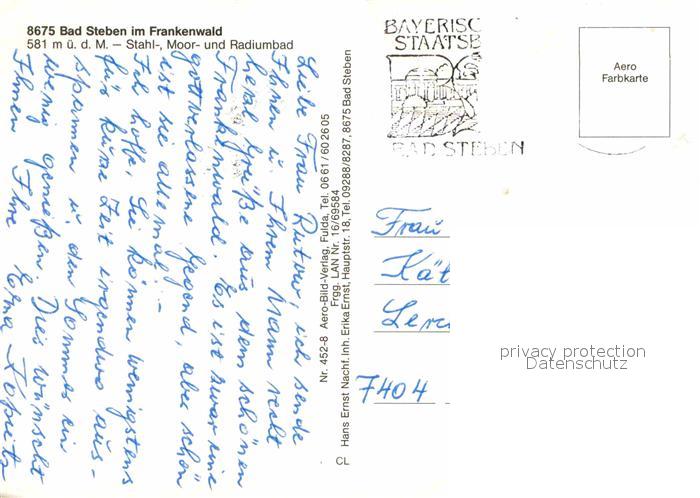 8675 Bad Steben im Frankenwald
581 m ü. d. M. – Stahl-, Moor- und Radiumbad
Liebe Frau Rutow, ich sende
Ihnen u. Ihrem Mann recht
herzl. Grüße aus dem schönen
Frankenwald. Es ist zwar eine
gottverlassene Gegend, aber schön
ist sie allemal.
Ich hoffe, Sie können wenigstens
für kurze Zeit irgendwo aus-
spannen u. den Sommer ein
wenig genießen. Dies wünscht
Ihnen Ihre Erna
Nr. 452-8 Aero-Bild-Verlag, Fulda, Tel. 06 61 / 60 26 05
Frgg. LAN Nr. 16/69584
Hans Ernst Nachf. Inh. Erika Ernst, Hauptstr. 18, Tel. 09288/8287, 8675 Bad Steben
CL
BAYERISC
STAATSB
BAD STEBEN
Aero
Farbkarte
Frau
Kät
Lerc
7404
privacy protection
Datenschutz